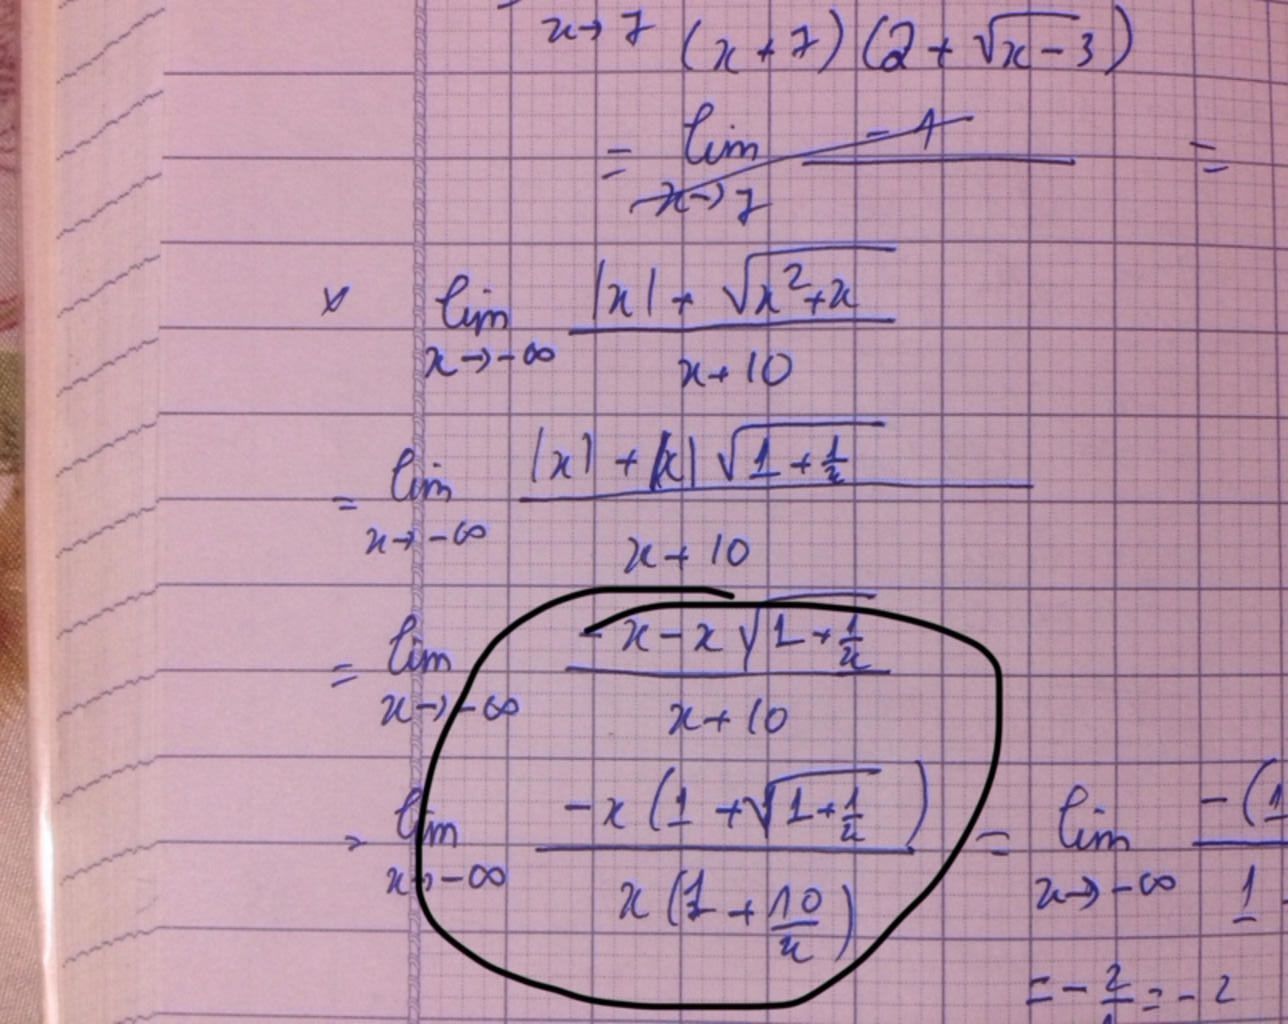 x→7 (x+7)(2+√x-3)
= lim x→7 -1 =
x lim x→-∞ |x| + √x²+x / x+10
= lim x→-∞ |x| + |x| √1+1/x / x+10
= lim x→-∞ -x-x√1+1/x / x+10
= lim x→-∞ -x(1+√1+1/x) / x(1+10/x) = lim x→-∞ -(1 / 1
= -2/1 = -2